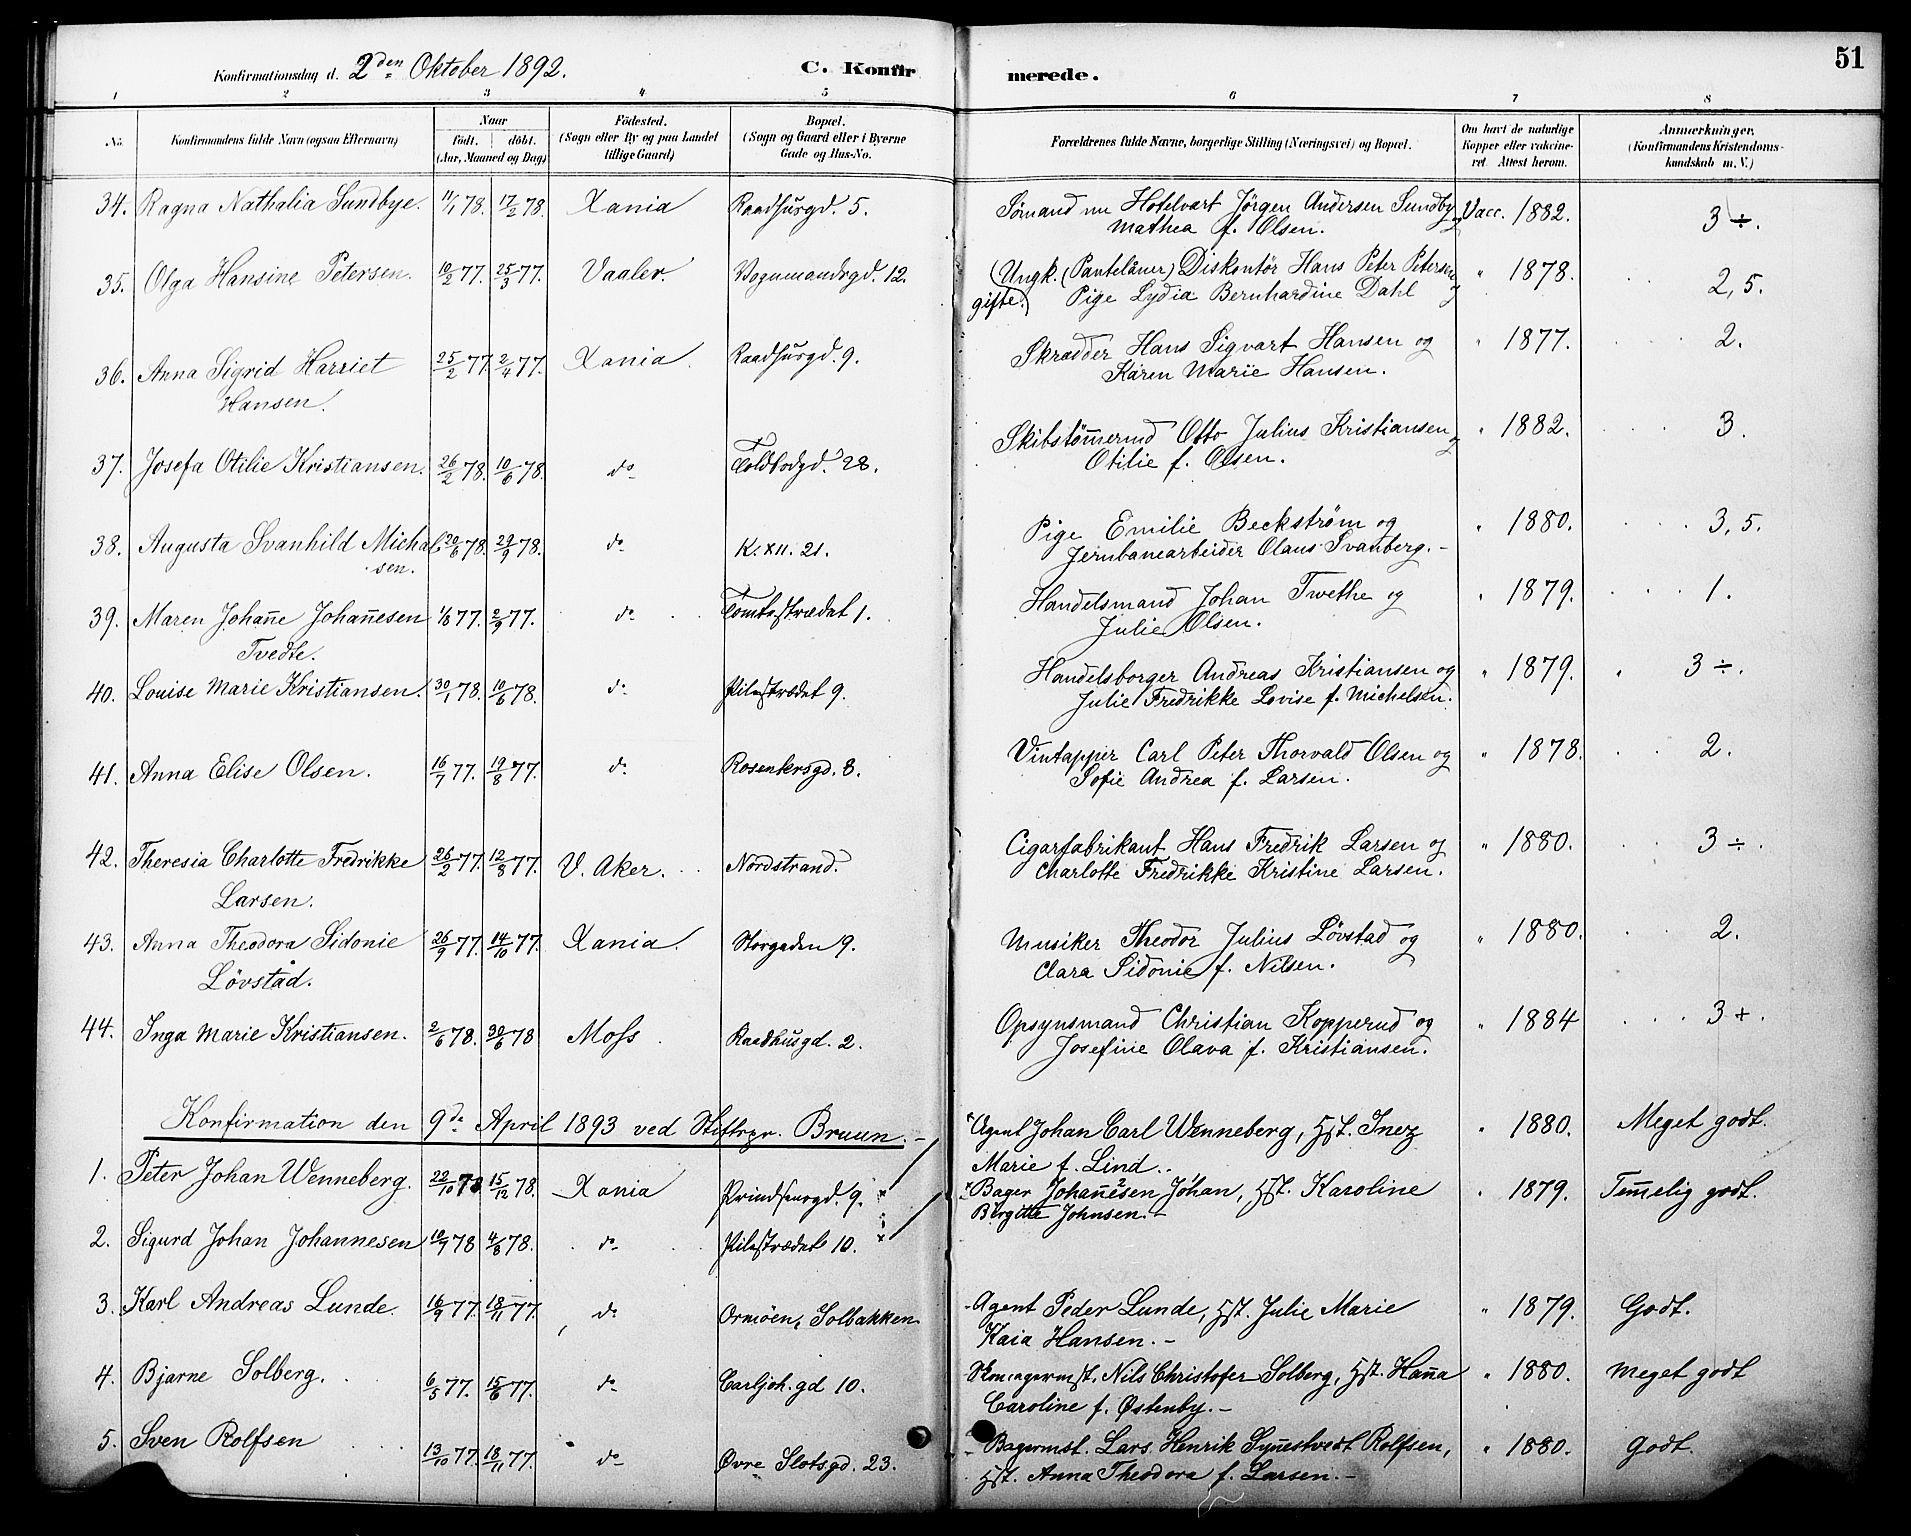 Konfirmationsdag d. 2den Oktober 1892. C. Konfirmerede. 51
1 2 3 4 5 6 7 8
No. Konfirmandens fulde Navn (ogsaa Efternavn) Naar født. døbt. (Aar, Maaned og Dag) Fødested. (Sogn eller By og paa Landet tillige Gaard) Bopæl. (Sogn og Gaard eller i Byerne Gade og Hus-No. Forældrenes fulde Navne, borgerlige Stilling (Næringsvei) og Bopæl. Om havt de naturlige Kopper eller vakcineret. Attest herom. Anmærkninger, (Konfirmandens Kristendomskundskab m. V.)
34. Ragna Nathalia Sundbye. 11/1 78. 17/2 78. Xania Raadhusgd. 5. Sømand nu Hotelvært Jørgen Andersen Sundby og Vacc. 1882. 3 ÷.
Mathea f. Olsen.
35. Olga Hansine Petersen. 10/2 77. 25/3 77. Vaaler. Vognmandsgd. 12. (Ungk. (Pantelåner) Diskontør Hans Peter Petersen og " 1878. 2, 5.
gifte.) Pige Lydia Bernhardine Dahl
36. Anna Sigrid Harriet 25/2 77. 2/4 77. Xania. Raadhusgd. 9. Skrædder Hans Sigvart Hansen og " 1877. 2.
Hansen. Karen Marie Hansen.
37. Josefa Otilie Kristiansen. 26/2 78. 10/6 78. do Toldbodgd. 28. Skibstømmermd Otto Julius Kristiansen og " 1882. 3.
Otilie f. Olsen.
38. Augusta Svanhild Michal- 20/6 78. 29/9 78. do K. XII. 21. Pige Emilie Beckstrøm og " 1880. 3, 5.
sen. Jernbanearbeider Olaus Svanberg. -
39. Maren Johan̄e Johan̄esen 1/8 77. 2/9 77. do Tomtestrædet 1. Handelsmand Johan Twethe og " 1879. 1.
Tvedte. Julie Olsen.
40. Louise Marie Kristiansen. 30/1 78. 10/6 78. do Pilestrædet 9. Handelsborger Andreas Kristiansen og " 1879. " 3 ÷.
Julie Fredrikke Lovise f. Michelsen.
41. Anna Elise Olsen. 16/7 77. 19/8 77. do Rosenkrsgd. 8. Vintapper Carl Peter Thorvald Olsen og " 1878. 2.
Sofie Andrea f. Larsen.
42. Theresia Charlotte Fredrikke 26/2 77. 12/8 77. V. Aker. Nordstrand. Cigarfabrikant Hans Fredrik Larsen og " 1880. 3 ÷.
Larsen. Charlotte Fredrikke Kristine Larsen.
43. Anna Theodora Sidonie 26/9 77. 14/10 77. Xania. Storgaden 9. Musiker Theodor Julius Løvstad og " 1880. 2.
Løvståd. Clara Sidonie f. Nilsen.
44. Inga Marie Kristiansen. 2/6 78. 30/6 78 Moss. Raadhusgd. 2. Opsynsmand Christian Kopperud og " 1884 3 +.
Josefine Olava f. Kristiansen.
Konfirmation den 9de April 1893 ved Stiftspr. Bruun. -
1. Peter Johan Wenneberg. 22/10 78 15/12 78. Xania Prindsensgd. 9. × × Agent Johan Carl Wenneberg, Hst. Inez " 1880. Meget godt.
Marie f. Lind.
2. Sigurd Johan Johannesen 10/7 78 4/8 78. do Pilestrædet 10. × × Bager Johan̄esen Johan, Hst. Karoline " 1879. Tem̄elig godt.
Birgitte Johnsen. -
3. Karl Andreas Lunde. 16/9 77. 18/11 77. do Ormøen, Solbakken. - Agent Peder Lunde, Hst. Julie Marie " 1879. Godt.
Kaia Hansen. -
4. Bjarne Solberg. 6/5 77. 15/6 77. do Carljoh.gd 10. Skomagermst. Nils Christofer Solberg, Hst. Han̄a " 1880. Meget godt
Caroline f. Østenby. -
5. Sven Rolfsen 13/10 77. 18/11 77. do Øvre Slotsgd. 23. - Bagermst. Lars Henrik Syn̄estvedt Rolfsen, " 1880. Godt.
Hst. Anna Theodora f. Larsen. -